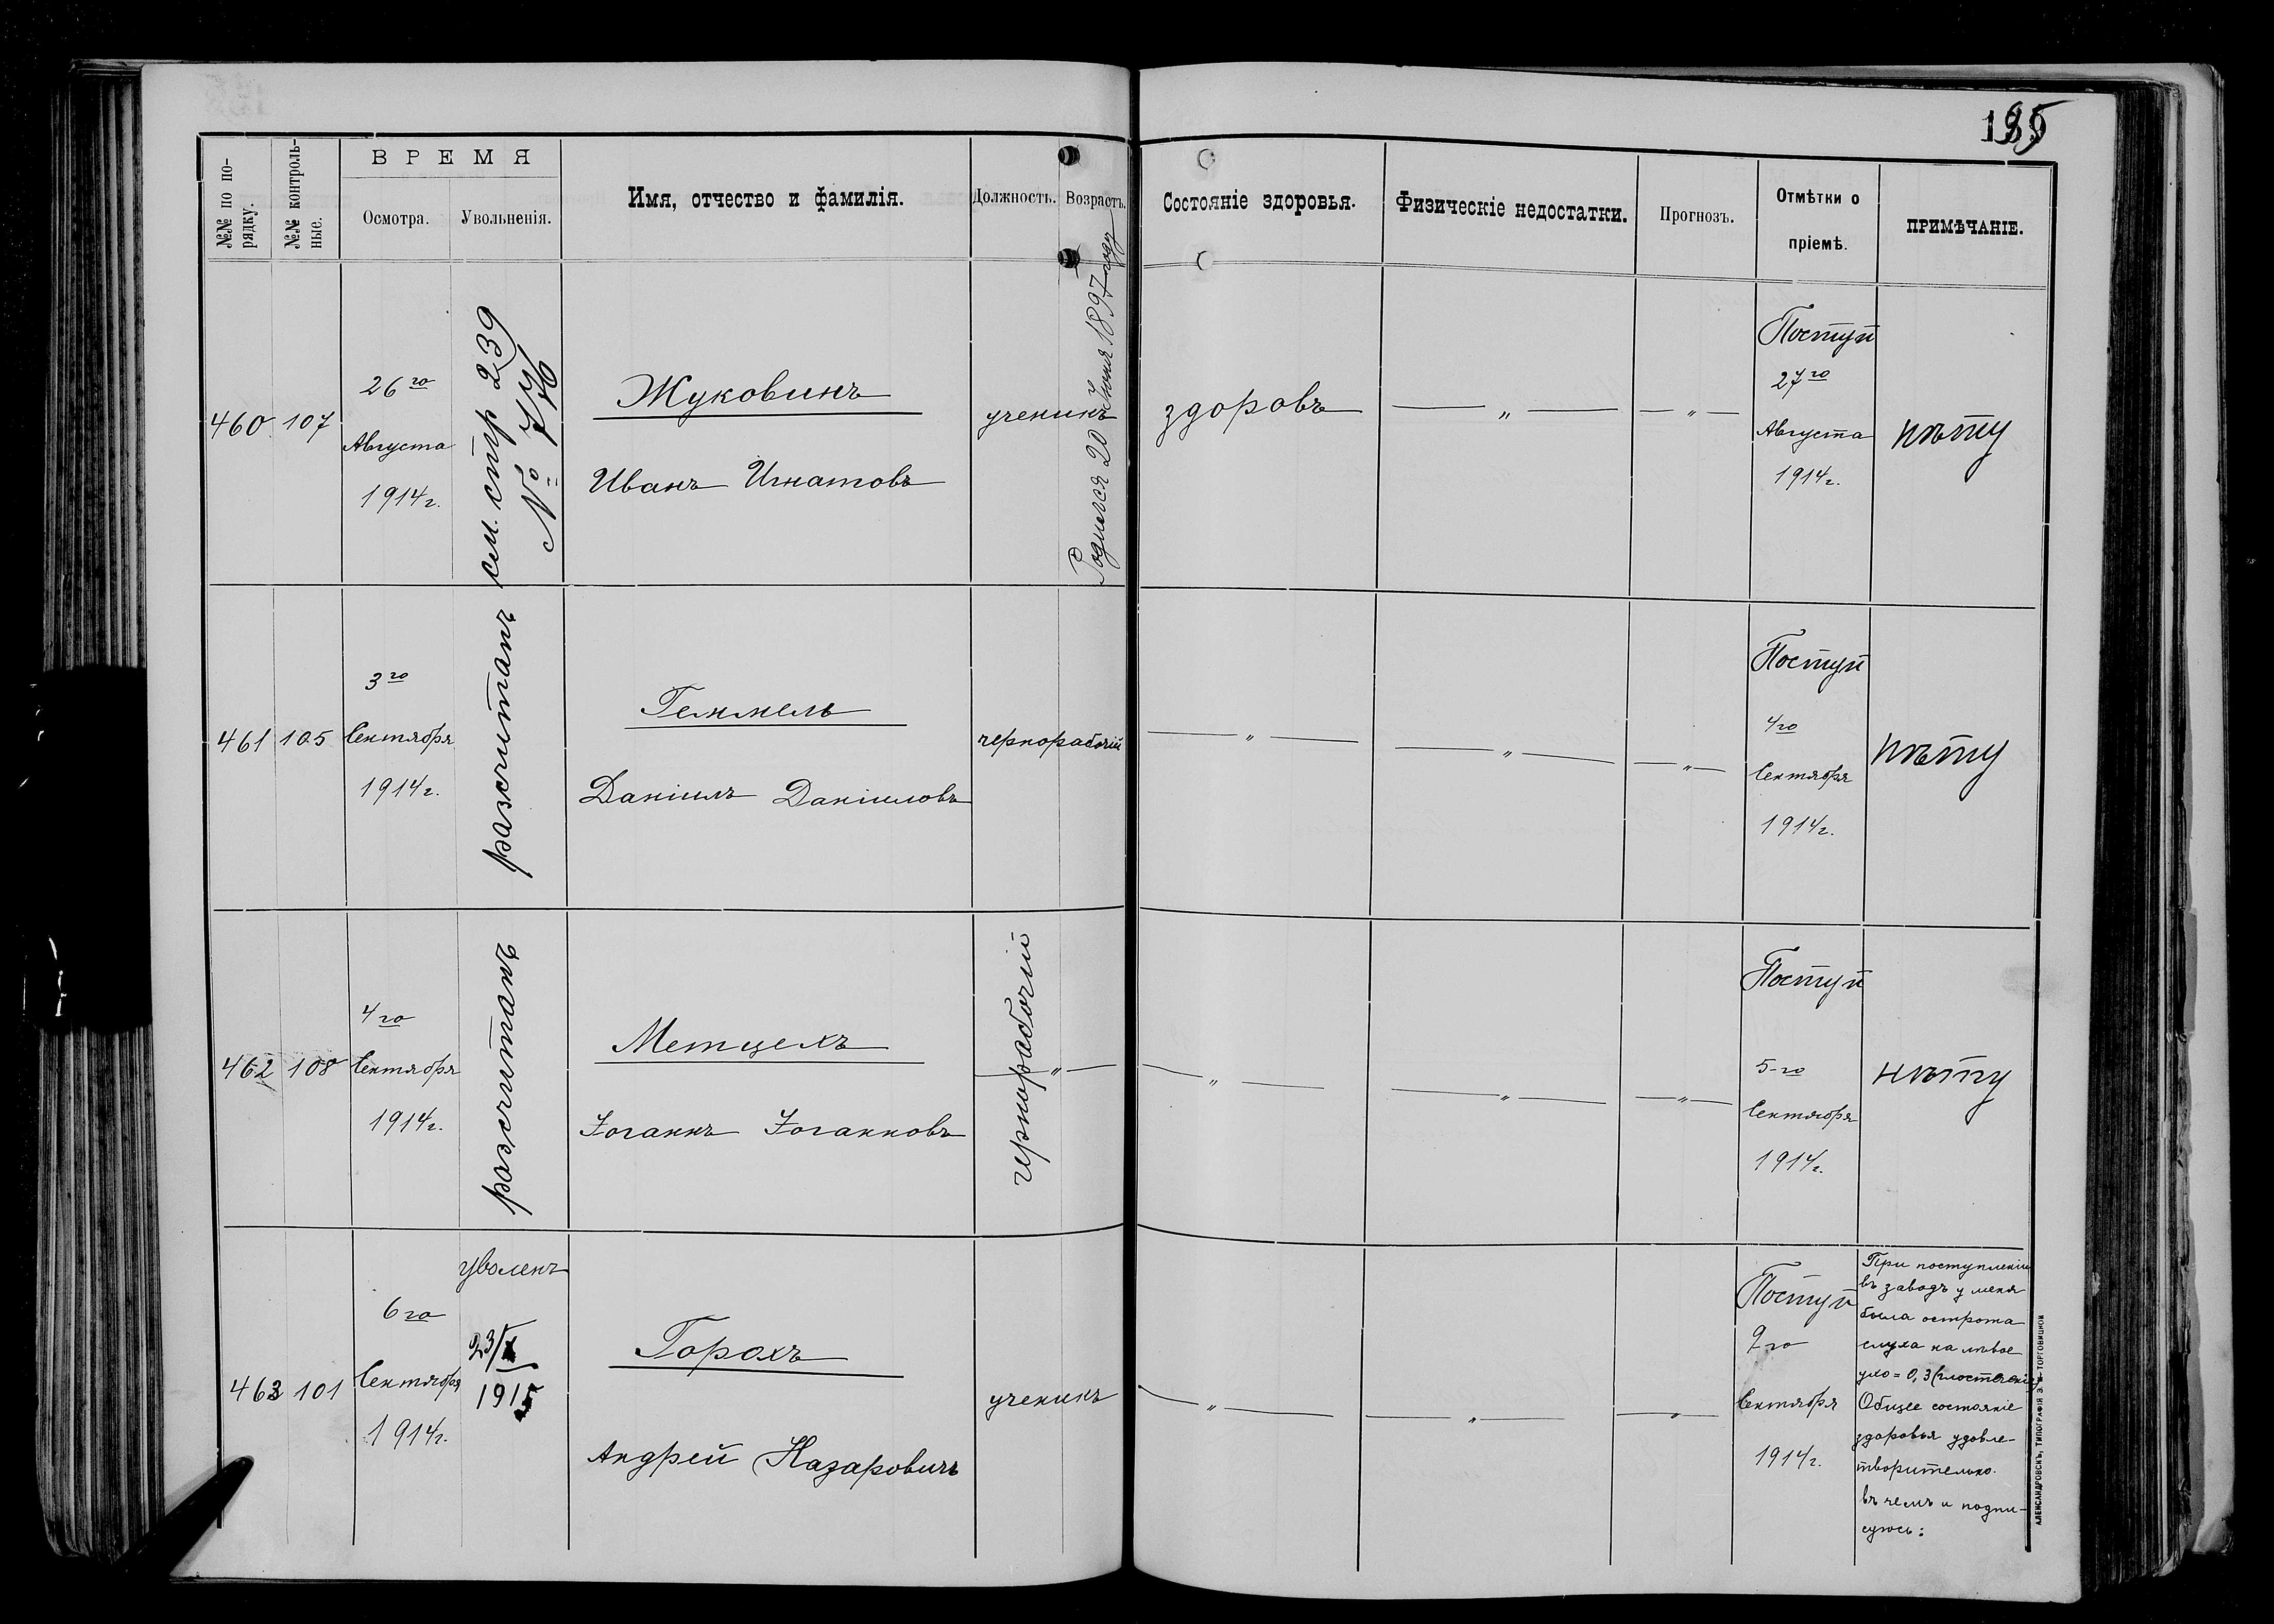 195
№№ по по-
рядку.
№№ контроль-
ные.
ВРЕМЯ
Осмотра.
Увольненія.
Имя, отчество и фамилія.
Должность.
Возрастъ.
Состояніе здоровья.
Физическіе недостатки.
Прогнозъ.
Отмѣтки о
пріемѣ.
ПРИМѢЧАНІЕ.
460
107
26го
Августа
1914г.
см. стр 239
№ 776
Жуковинъ
Иванъ Игнатовъ
ученикъ
Родился 20 Іюня 1897 году
здоровъ
— „ —
— „ —
Поступ
27го
Августа
1914г.
нѣту
461
105
3го
Сентября
1914г.
разсчитанъ
Геммель
Даніилъ Даніиловъ
чернорабочій
— „ —
— „ —
— „ —
Поступ
4го
Сентября
1914г.
нѣту
462
108
4го
Сентября
1914г.
разсчитанъ
Метцехъ
Іоганнъ Іоганновъ
чернорабочій
— „ —
— „ —
— „ —
— „ —
Поступ
5-го
Сентября
1914г.
нѣту
463
101
6го
Сентября
1914г.
уволенъ
23/X
1915
Горохъ
Андрей Назаровичъ
ученикъ
— „ —
— „ —
— „ —
Поступ
9го
Сентября
1914г.
При поступленіи
въ заводъ у меня
была острота
слуха на лѣвое
ухо = 0,3
Общее состояніе
здоровья удовле-
творительно.
въ чемъ и подпи-
суюсь:
АЛЕКСАНДРОВСКЪ, ТИПОГРАФІЯ ТОРГОВИЦКОЙ